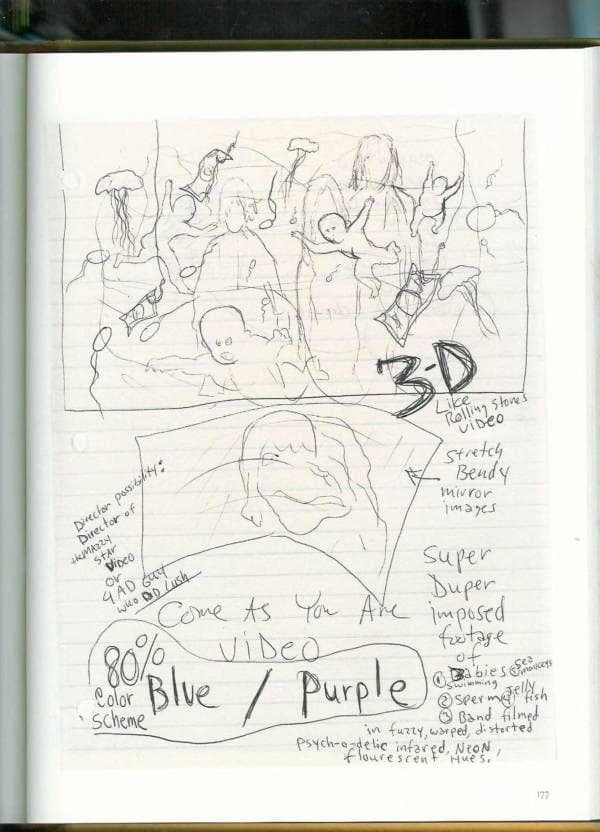 3-D
Like
Rolling Stones
Video
Stretch
Bendy
mirror
images
Director possibility:
Director of
MAZZY
STAR
Video
or
4AD Guy
who DiD Lush
Come As You Are
Video
80%
Color
Scheme
Blue / Purple
Super
Duper
imposed
footage
of
Babies
① swimming
② sperm
③ Band filmed
④ Jelly fish
⑤ sea monkeys
in fuzzy, warped, distorted
psych-o-delic infared, NeoN,
flourescent Hues.
177